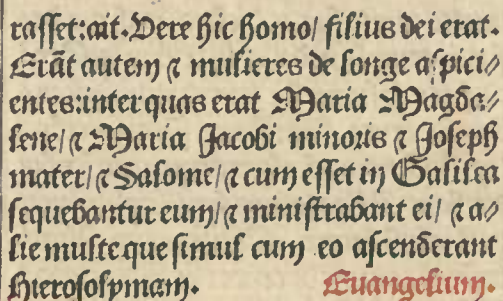 raſſet:ait.Vere hic homo/ filius dei erat.
Erãt autem ⁊ mulieres de longe aſpici⸗
entes:inter quas erat Maria Magda⸗
lene/ ⁊ Maria Jacobi minoris ⁊ Joſeph
mater/ ⁊ Salome/ ⁊ cum eſſet in Galilea
ſequebantur eum/ ⁊ miniſtrabant ei/ ⁊ a⸗
lie multe que ſimul cum eo aſcenderant
Hieroſolymam. Euangelium.